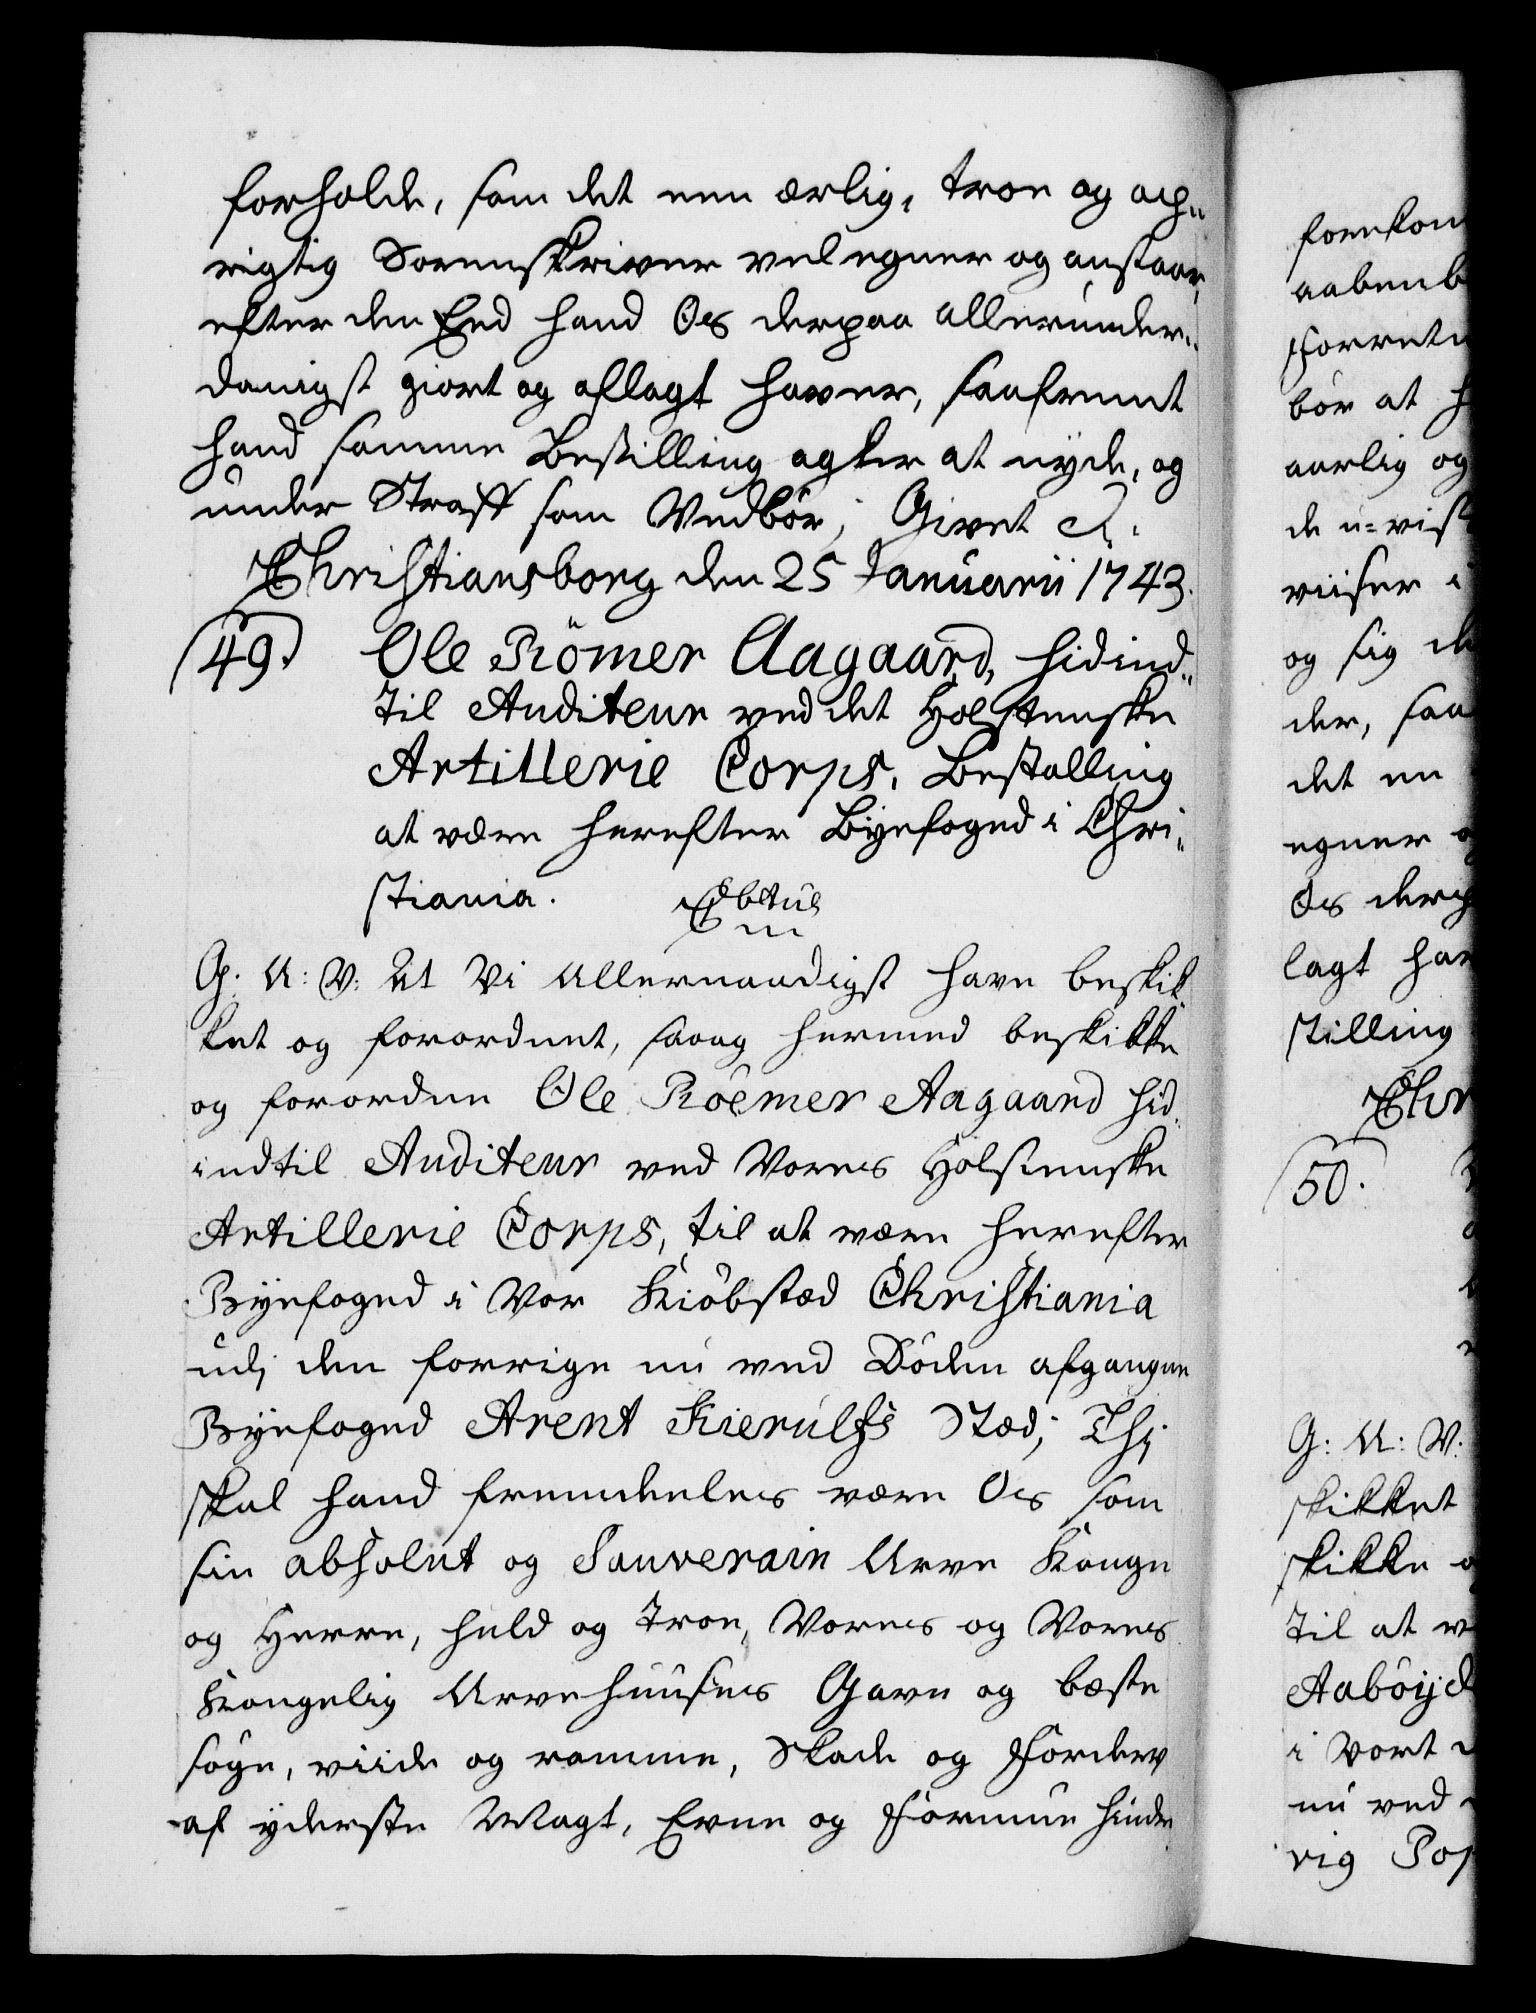 forholde, som det een ærlig, troe og op„
rigtig Sorenskriver vel egner og anstaar,
efter den Eed hand Os derpaa allerunder„
danigst giort og aflagt haver, saafremt
hand samme Bestilling agter at nyde, og
under Straff som Vedbør; Givet &.
Christiansborg den 25 Januarii 1743.
49. Ole Römer Aagaard, hidind„
til Auditeur ved det Holsteenske
Artillerie Corps, Bestalling
at være herefter Byefoged i Chri„
stiania.
G. A: V: At Vi Allernaadigst have beskik„
ket og forordnet, saaog hermed beskikke
og forordne Ole Röemer Aagaard hid„
indtil Auditeur ved Vores Holsteenske
Artillerie Corps, til at være herefter
Byefoged i Vor Kiöbstæd Christiania
udj den forrige nu ved Döden afgangne
Byefoged Arent Kierulfs Stæd; Thj
skal hand fremdeeles være Os som
sin absolut og Souverain Arve Konge
og Herre, huld og Troe, Vores og Vores
Kongelig Arvehuuses Gavn og bæste
søge, viide og ramme, Skade og Forderv
af yderste Magt, Evne og Formue hindre
forekom
aabenb
Forrete
bør at h
aarlig og
de u-vist
viiser i
og sig de
der, saa
det en
egner o
Os derp
lagt hav
stilling
Chr
50.
G: A: V:
skikket
skikke o
til at v
Aaböijd
i Vort
nu ved
rig Pos